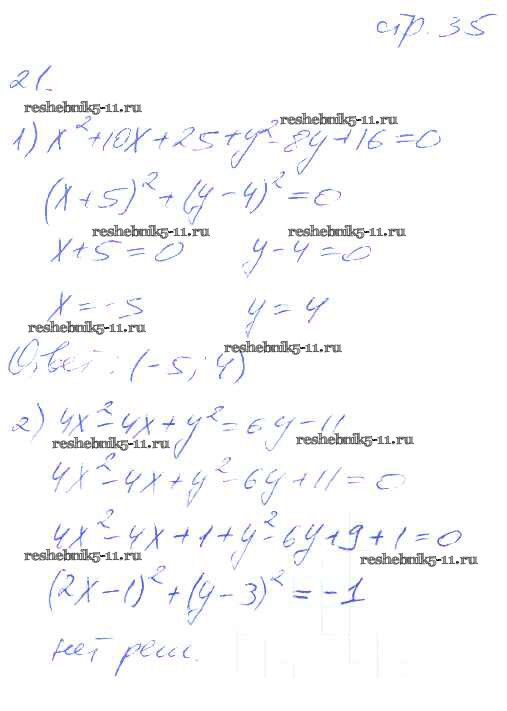 стр. 35
21.
reshebnik5-11.ru
reshebnik5-11.ru
1) x²+10x+25+y²-8y+16=0
(x+5)²+(y-4)²=0
reshebnik5-11.ru
reshebnik5-11.ru
x+5=0 y-4=0
x=-5 y=4
reshebnik5-11.ru
reshebnik5-11.ru
Ответ: (-5; 4)
2) 4x²-4x+y²=6y-11
reshebnik5-11.ru
reshebnik5-11.ru
4x²-4x+y²-6y+11=0
4x²-4x+1+y²-6y+9+1=0
reshebnik5-11.ru
reshebnik5-11.ru
(2x-1)²+(y-3)²=-1
нет реш.